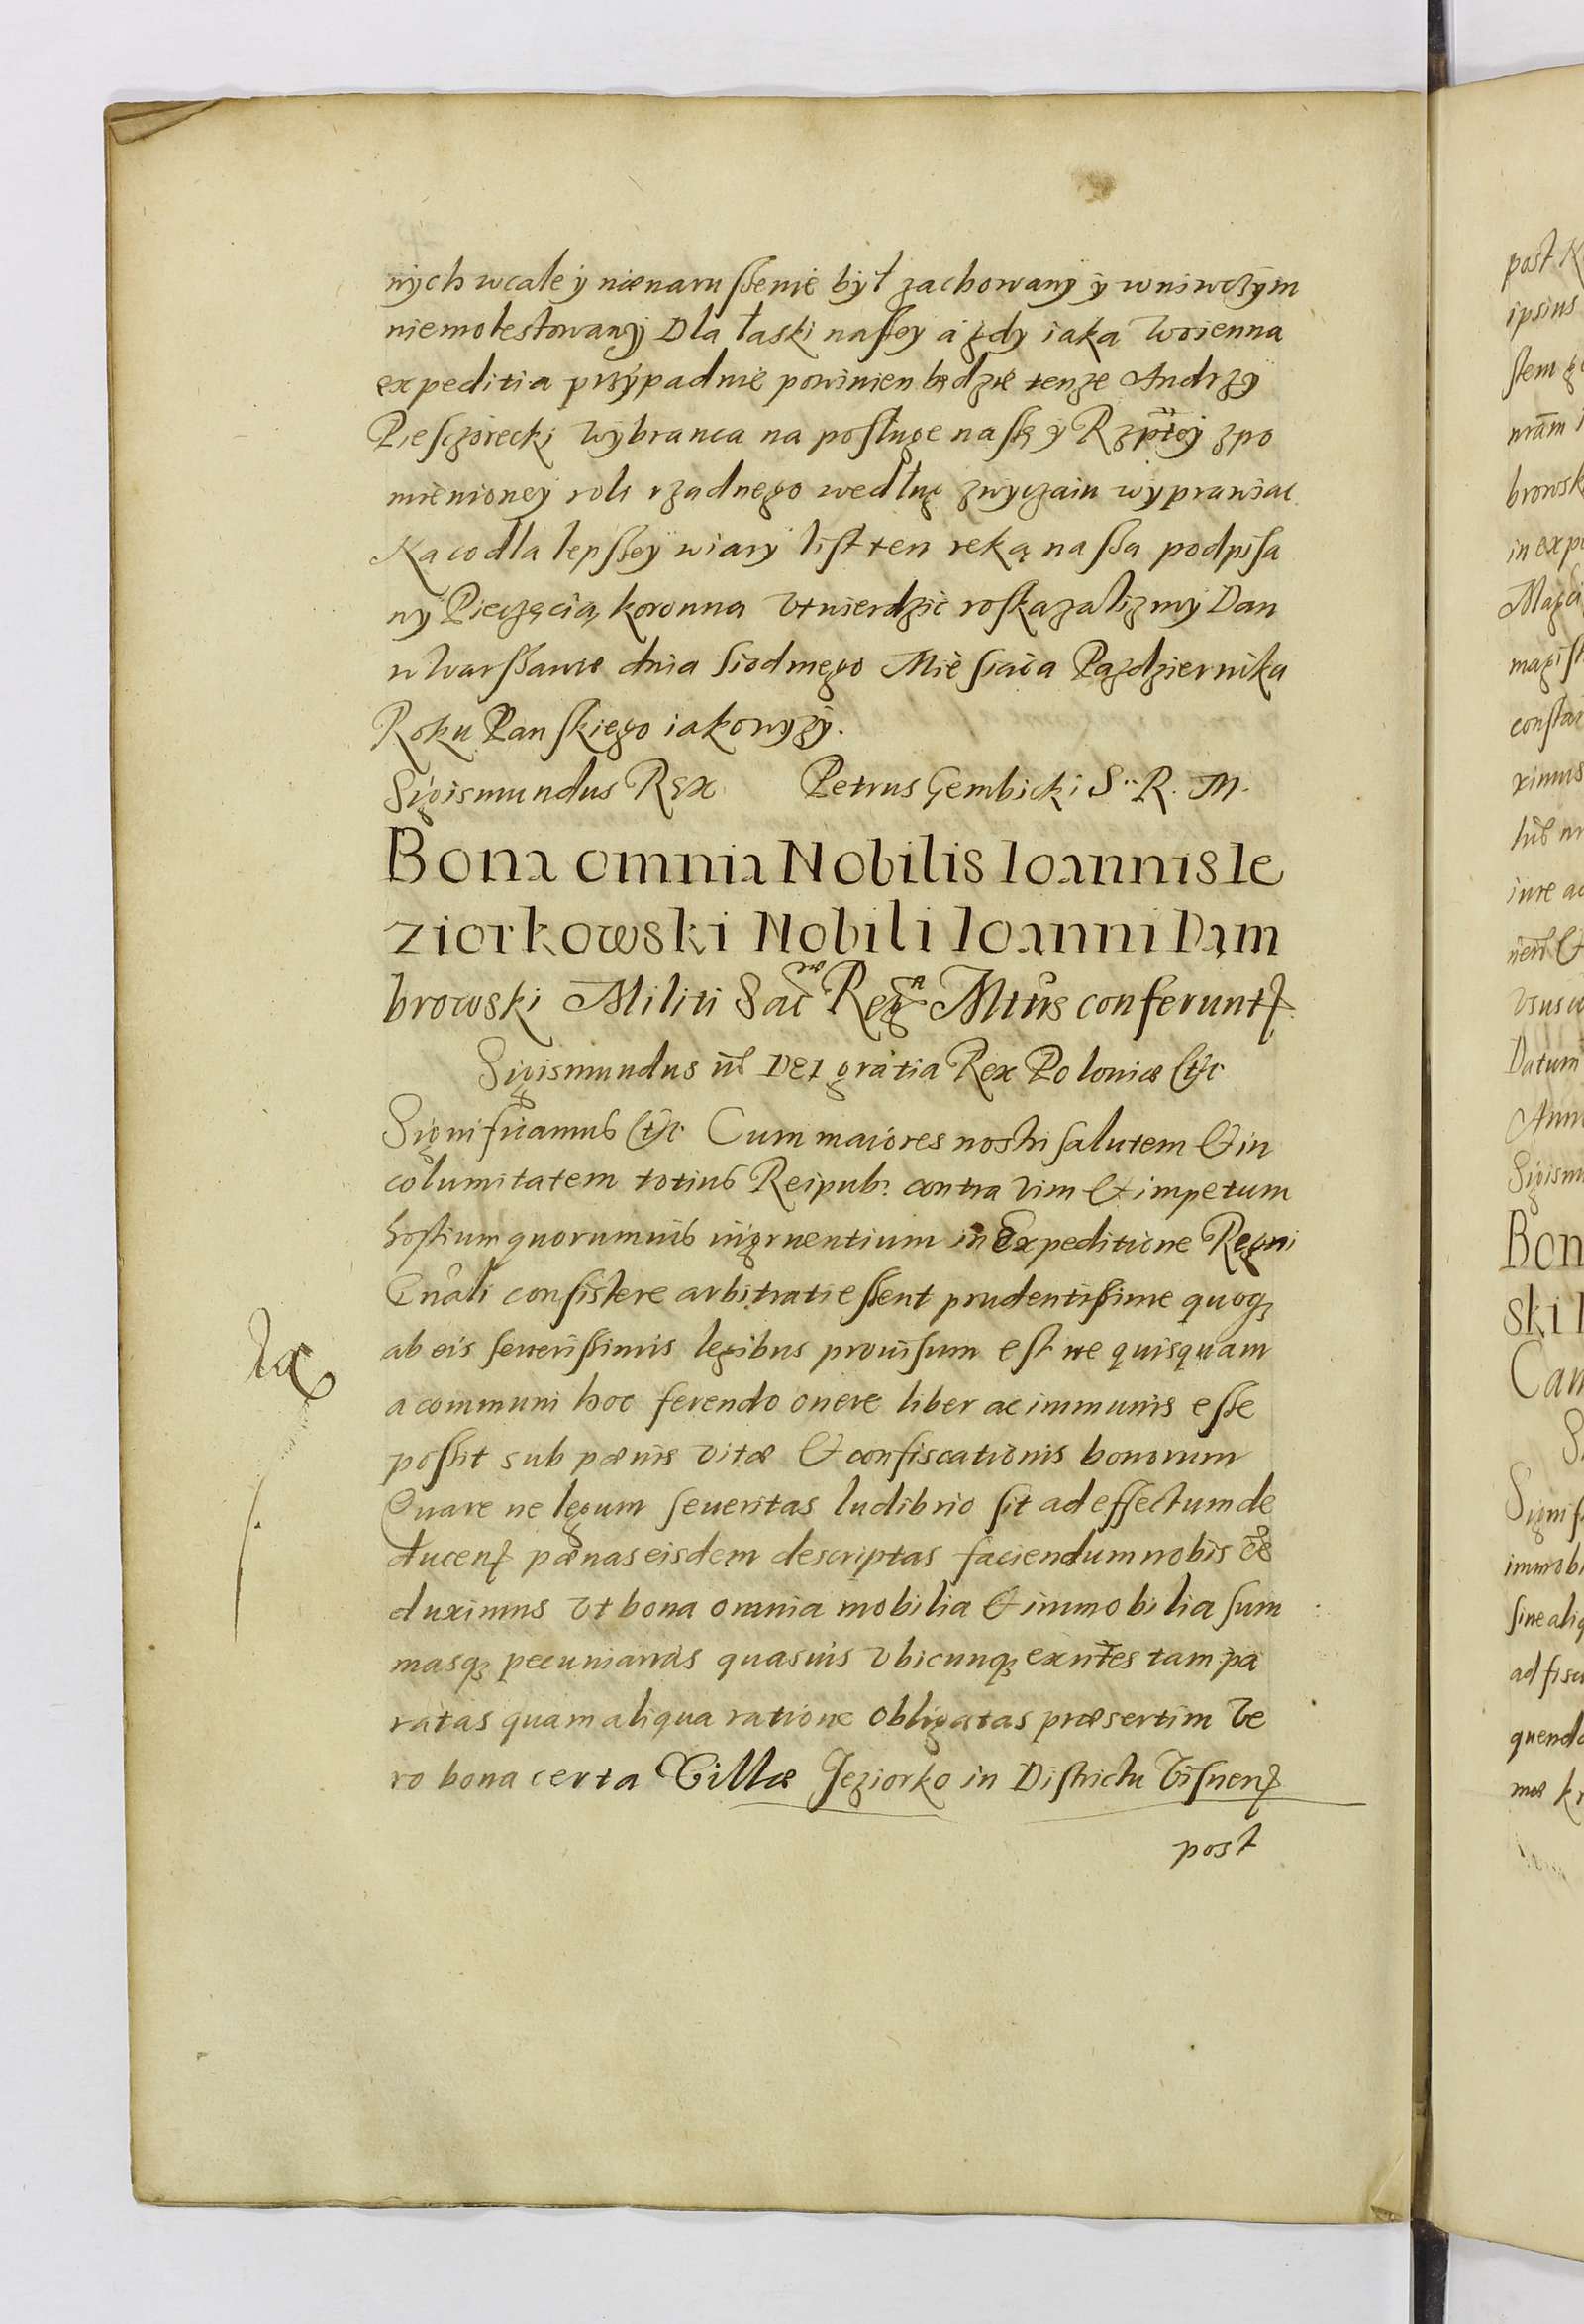 nych wcale y nienarussenie był zachowany y wniwczym
niemolestowany Dla łaski nassey a gdy iaka woienna
expeditia przypadnie powinien będzie tenże Andrzy
Piesczorecki wybranca na posługę naszę y Rzptey zpo
mienioney roli rządnego według zwyczaiu wyprawiac
Na co dla lepssey wiary list ten ręką nassą podpisa
ny Pieczęcią koronna Utwierdzic roskazalizmy Dan
w Warssawie dnia siodmego Miesiaca Pazdziernika
Roku Panskiego iako wyzy.
Sigismundus Rex Petrus Gembicki S. R. M.
Bona omnia Nobilis Ioannis Ie
ziorkowski Nobili Ioanni Dam
browski Militi Sac Reg Mttis conferunt
Sigismundus III Dei gratia Rex Poloniæ etc
Significamus etc Cum maiores nostri salutem & in
columitatem totius Reipub: contra vim & impetum
hostium quorumuis ingruentium in Expeditione Regni
Gnali consistere arbitrati essent prudentissime quoq;
ab eis seuerissimis legibus prouisum est ne quisquam
a communi hoc ferendo onere liber ac immunis esse
possit sub pœnis vitæ & confiscationis bonorum
Quare ne legum seueritas ludibrio sit ad effectum de
ducen pœnas eisdem descriptas faciendum nobis ee
duximus vt bona omnia mobilia & immobilia sum
masq; pecuniarias quasuis vbicunq; exntes tam pa
ratas quam aliqua ratione obligatas præsertim ve
ro bona certa Villæ Jeziorko in Districtu Visnen
post
post
ipsius
stem
browsk
in exp
magist
constai
ximus
iure ac
Datum
Sigism
Bon
ski
Cam
Signif
immobi
sine aliq
ad fisc
quenda